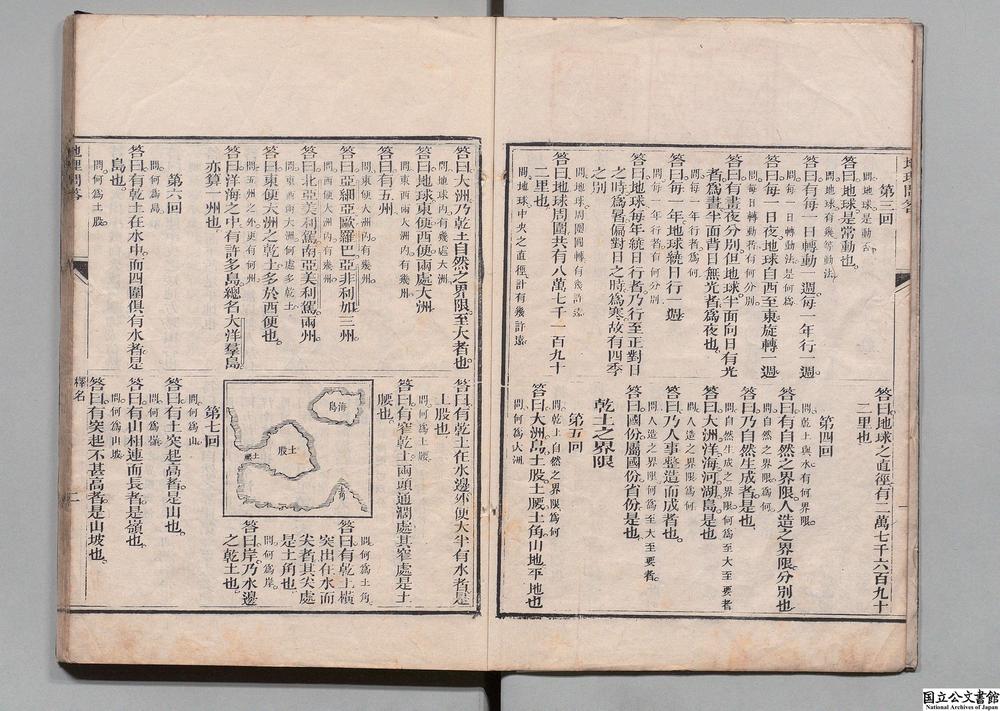 地理問答
第三回
問地球是動否
答曰地球是常動也
問地球有幾等動法
答曰有每一日轉動一週每一年行一週
問每一日轉動法是何爲
答曰每一日夜地球自西至東旋轉一週
問每日轉動者有何分別
答曰有晝夜分別但地球半面向日有光
者爲晝半面背日無光者爲夜也
問每一年行者爲何
答曰每一年地球統日行一週
問每一年行者有何分別
答曰地球每年統日行者乃行至正對日
之時爲暑偏對日之時爲寒故有四季
之別
問地球周圍轉有幾許遠
答曰地球周圍共有八萬七千一百九十
二里也
問地球中央之直徑計有幾許遠
答曰地球之直徑有二萬七千六百九十
二里也
第四回
問乾土與水有何界限
答曰有自然之界限人造之界限分別也
問自然之界限爲何
答曰乃自然生成者是也
問自然生成之界限何爲至大至要者
答曰大洲洋海河湖島是也
問人造之界限爲何
答曰乃人事整造而成者也
問人造之界限何爲至大至要者
答曰國份屬國份省份是也
乾土之界限
第五回
問乾土自然之界限爲何
答曰大洲島土股土腰土角山地平地也
問何爲大洲
答曰大洲乃乾土自然之界限至大者也
問地球內有幾處大洲
答曰地球東便西便兩處大洲
問東西兩大洲內有幾州
答曰有五州
問東便大洲內有幾州
答曰亞細亞歐羅巴亞非利加三州
問西便大洲內有幾州
答曰北亞美利駕南亞美利駕兩州
問東西兩大洲何處多乾土
答曰東便大洲之乾土多於西便也
問五州之外更有何州
答曰洋海之中有許多島總名大洋羣島
亦算一州也
第六回
問何爲島
答曰有乾土在水中而四圍俱有水者是
島也
問何爲土股
答曰有乾土在水邊外便大半有水者是
土股也
問何爲土腰
答曰有窄乾土兩頭通濶處其窄處是土
腰也
海島
土股
土腰
土角
問何爲土角
答曰有乾土橫
突出在水而
尖者其尖處
是土角也
問何爲岸
答曰岸乃水邊
之乾土也
第七回
問何爲山
答曰有土突起高者是山也
問何爲嶺
答曰有山相連而長者是嶺也
問何爲山坡
答曰有突起不甚高者是山坡也
地理問答
釋名
二
国立公文書館
National Archives of Japan